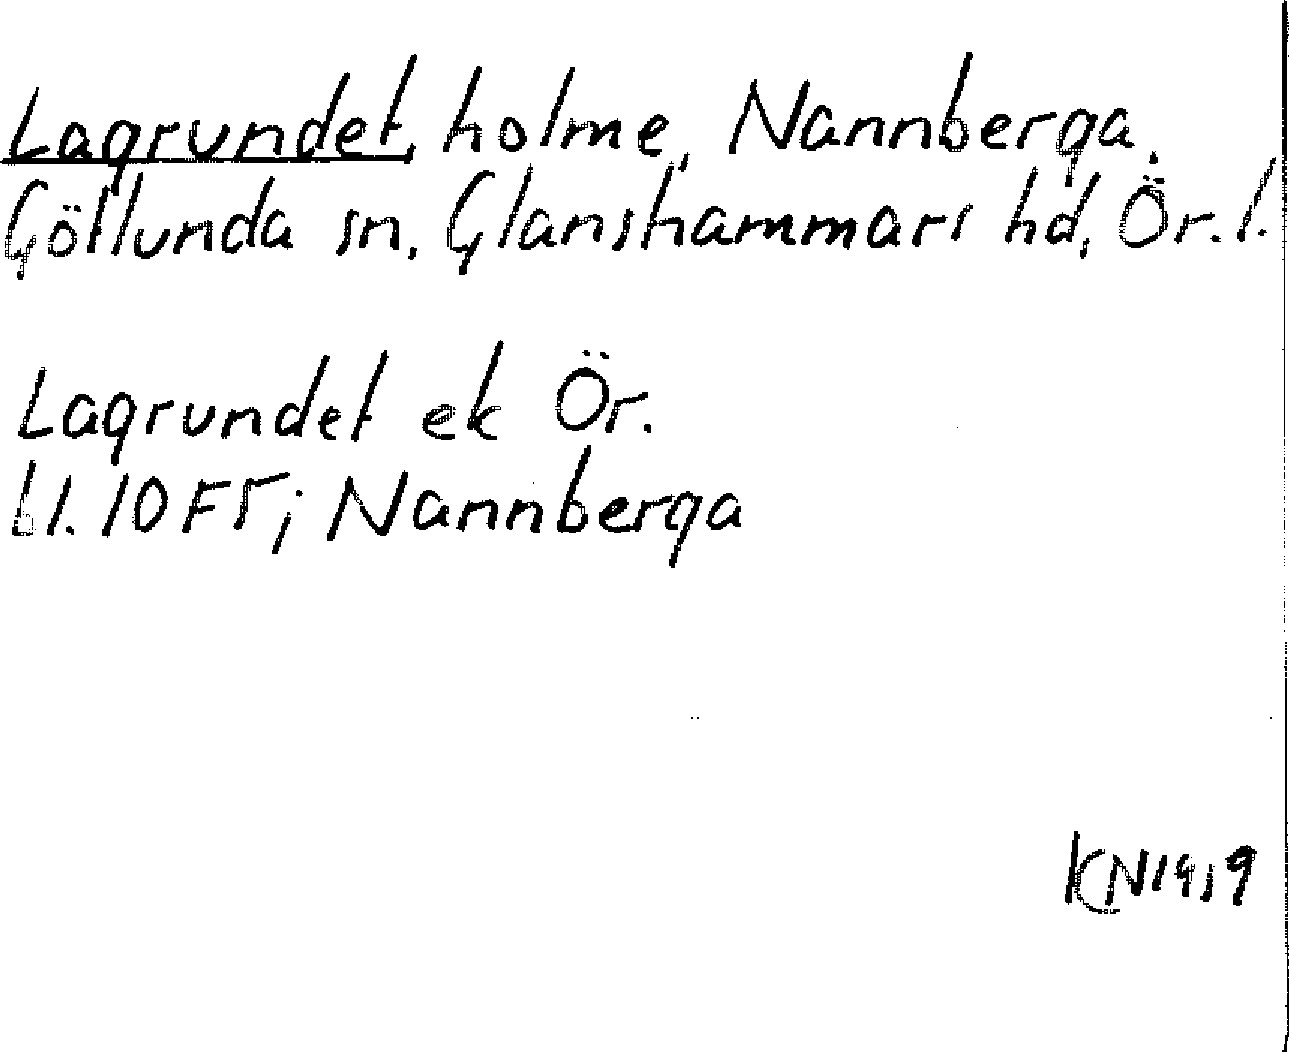 Lagrundet, holme, Nannberga,
Götlunda sn, Glanshammars hd, Ör. l.
Lagrundet ek Ör.
bl. 10 F5; Nannberga
KN 1919